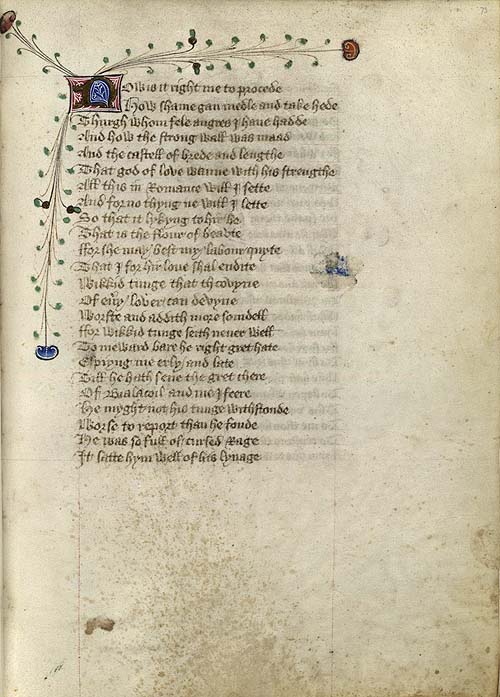 Now is it right me to procede
How shame gan medle and take hede
Thurgh whom fele angres I haue hadde
And how the strong wall was maad
And the castell of brede and lengthe
That god of loue wanne with his strengthe
All this in Romance will I sette
And for no thyng ne will I lette
So that it lykyng to hir be
That is the flour of beaute
ffor she may best my labour quyte
That I for hir loue shal endite
Wikkid tunge that the covyne
Of euery louer can devyne
Worste and addith more somdell
ffor wikkid tunge seith neuer well
To meward bare he right gret hate
Espiyng me erly and late
Till he hath sene the gret chere
Of Bialacoil and me I feere
He myght not his tunge withstonde
Worse to report than he fonde
He was so full of cursed Rage
It satte hym well of his lynage
73